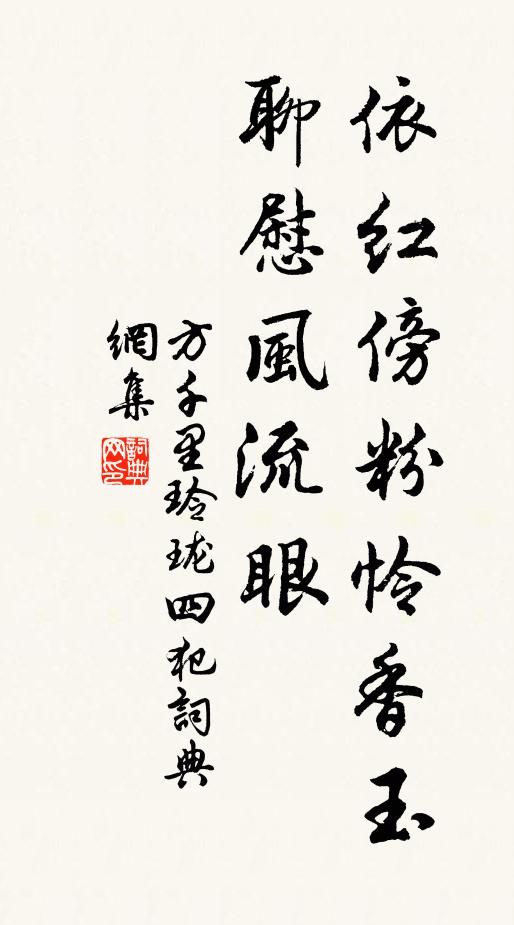 依紅傍粉怜香玉
聊慰風流眼
方千里玲瓏四犯詞典
網集
詞典
网印